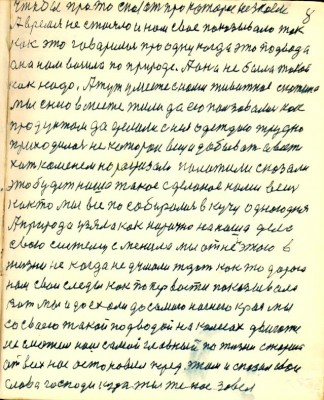 чтобы про то спеют про которое не знаем
А время не стояло и нам свое показывало так
как это говорилося про одну когда это подвода
она нам вошла по природе. А она не была такой
как надо. А тут уместе с ними животное скотина
мы с нею вместе жили да его пользовали как
продуктом да делали с ней одеждою трудно
приходилося не которой вещи добывать а вот
хотя каменем но резали и колотили сказали
это будет наша такое сделаное нами вещи
как то мы все по собиралися в кучу одного дня
А природа узяла как нарочно на наша дело
свою систему сменила мы от неё этого в
жизни не когда не думали ждать как то дорого
нам свои следы как то первости показывала
Вот мы и доехали до самого нашего края мы
со своего такой подводой на колесах двигать
не сможем нам самой главный по жизни старик
от всех нас остановил перед ним и сказал свои
слова господи куда ты же нас завел